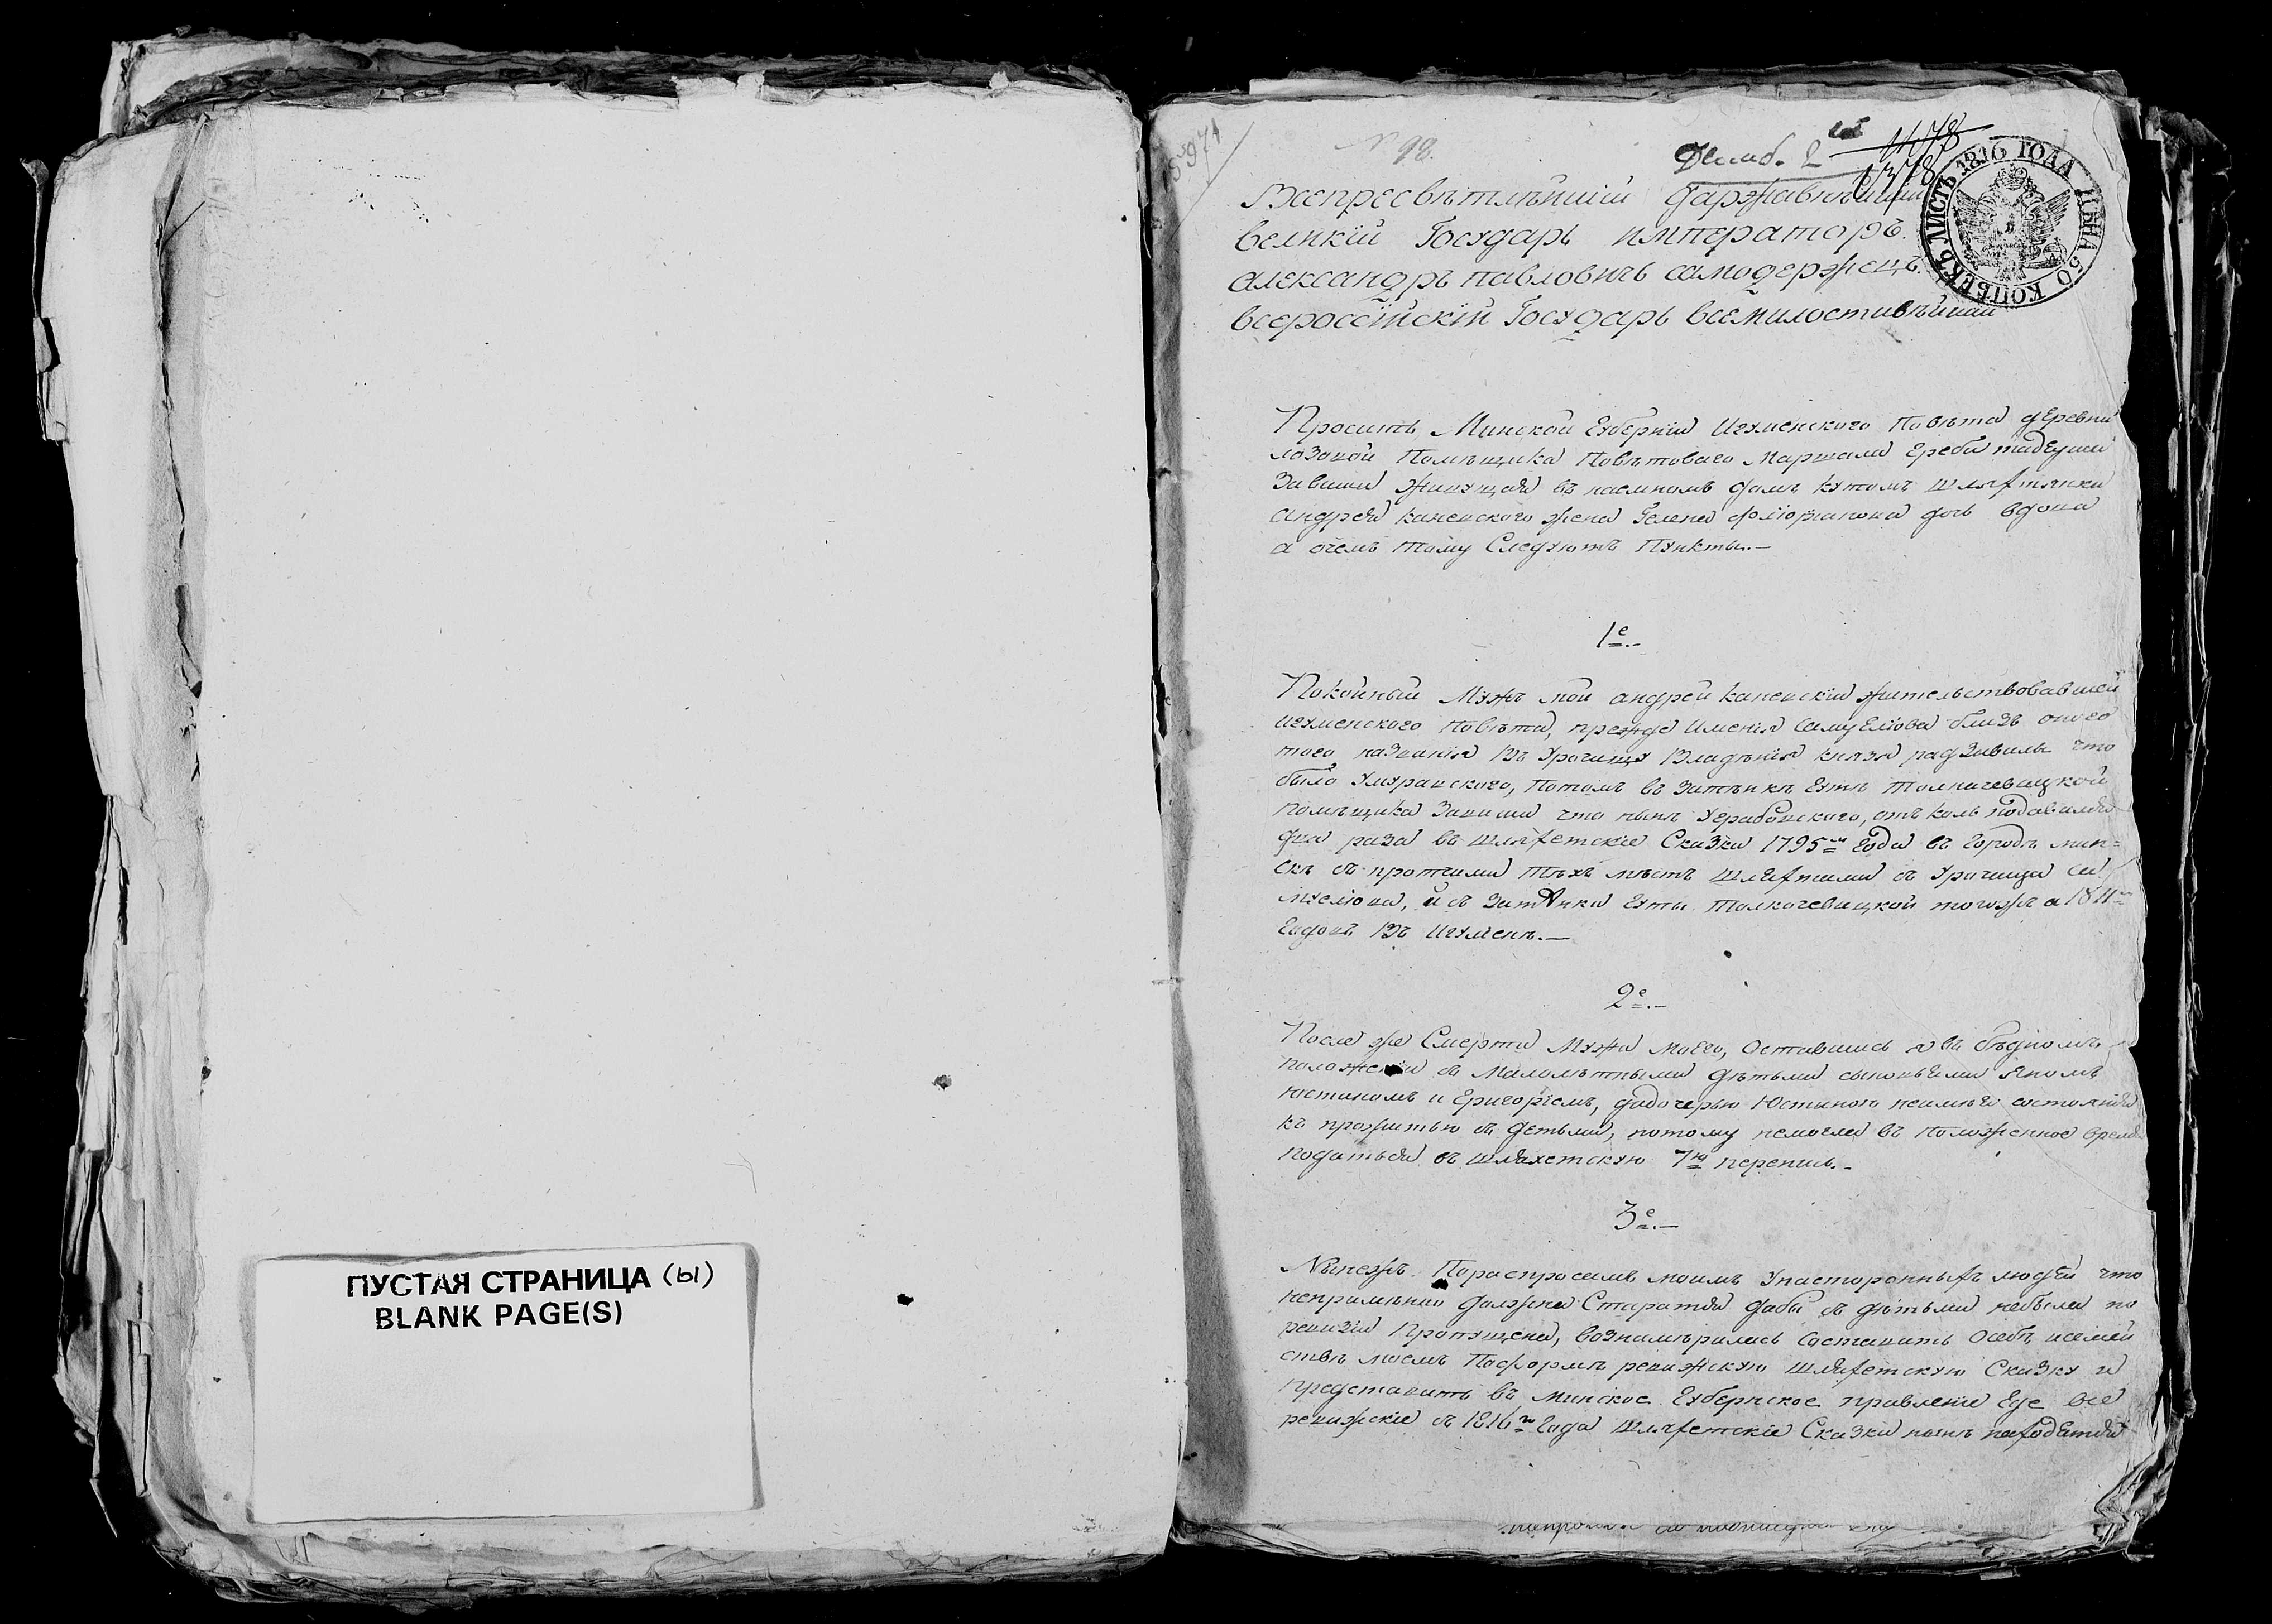 ПУСТАЯ СТРАНИЦА (Ы)
BLANK PAGE(S)
971
№ 98.
Декаб. 2
1478
1378
ЛИСТЪ 1816 ГОДА ЦѢНА 50 КОПѢЕКЪ
Всепресвѣтлѣйшій Даржавнѣйшій
великій Государь императоръ.
александръ павловичъ самодержецъ.
всероссійскій Государь всемилостивѣйшій
Проситъ Минской Губерніи Игуменского Повѣта деревни
лозовой Помѣщика Повѣтоваго Маршала Герба тадеуша
Завиши живущая въ наемномъ домѣ кутомъ шляхтянки
андрея каневского жена Гелена Флюріанова дочь вдова
а очемъ тому Следуютъ Пункты.—
1е.—
Покойный Мужъ мой андрей каневскій жительствовавшей
игуменского повѣта, прежде имѣнія Самуелюва близъ оного
того названія Въ Урочищу Владѣнія князя радзивила что
было Умуравского, потомъ въ Затѣнкѣ Гутѣ толкачевицкой
помѣщика Завиши что нынѣ Ухрабовского, отъ коль подавался
два раза въ шляхетскіе Сказки 1795го Года въ Городѣ мин=
скѣ съ протчими тѣхъ мѣстъ шляхтами съ Урочища Са
муелюва, и съ затѣнка Гуты Толкачевицкой тогожъ а 1811го
Годовъ Въ Игуменѣ.—
2е.—
После же Смерти Мужа моего, оставшись я въ бѣдномъ
положеніи съ Малолѣтными дѣтьми сыновьями Яномъ
юстиномъ и Григоріемъ, дадочерью Юстыною неимѣя состоянія
къ прожитью съ детьми, потому немогла въ положенное время
податься въ шляхетскую 7ю перепись.—
3е.—
Нынежъ Пораспросамъ моимъ Упасторонныхъ людей что
непримѣнно должна Старатся дабы съ дѣтьми небыла по
ревизіи Пропущена, вознамѣрилась Составить Осебѣ исемей
ствѣ моемъ Поформѣ ревижскую шляхетскую Сказку и
представить въ минское Губернское правленіе Где все
ревижскіе съ 1816го Года Шляхетскіе Сказки нынѣ находятся